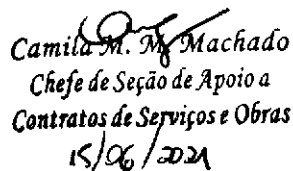 Camila M. M. Machado
Chefe de Seção de Apoio a
Contratos de Serviços e Obras
15/06/2021